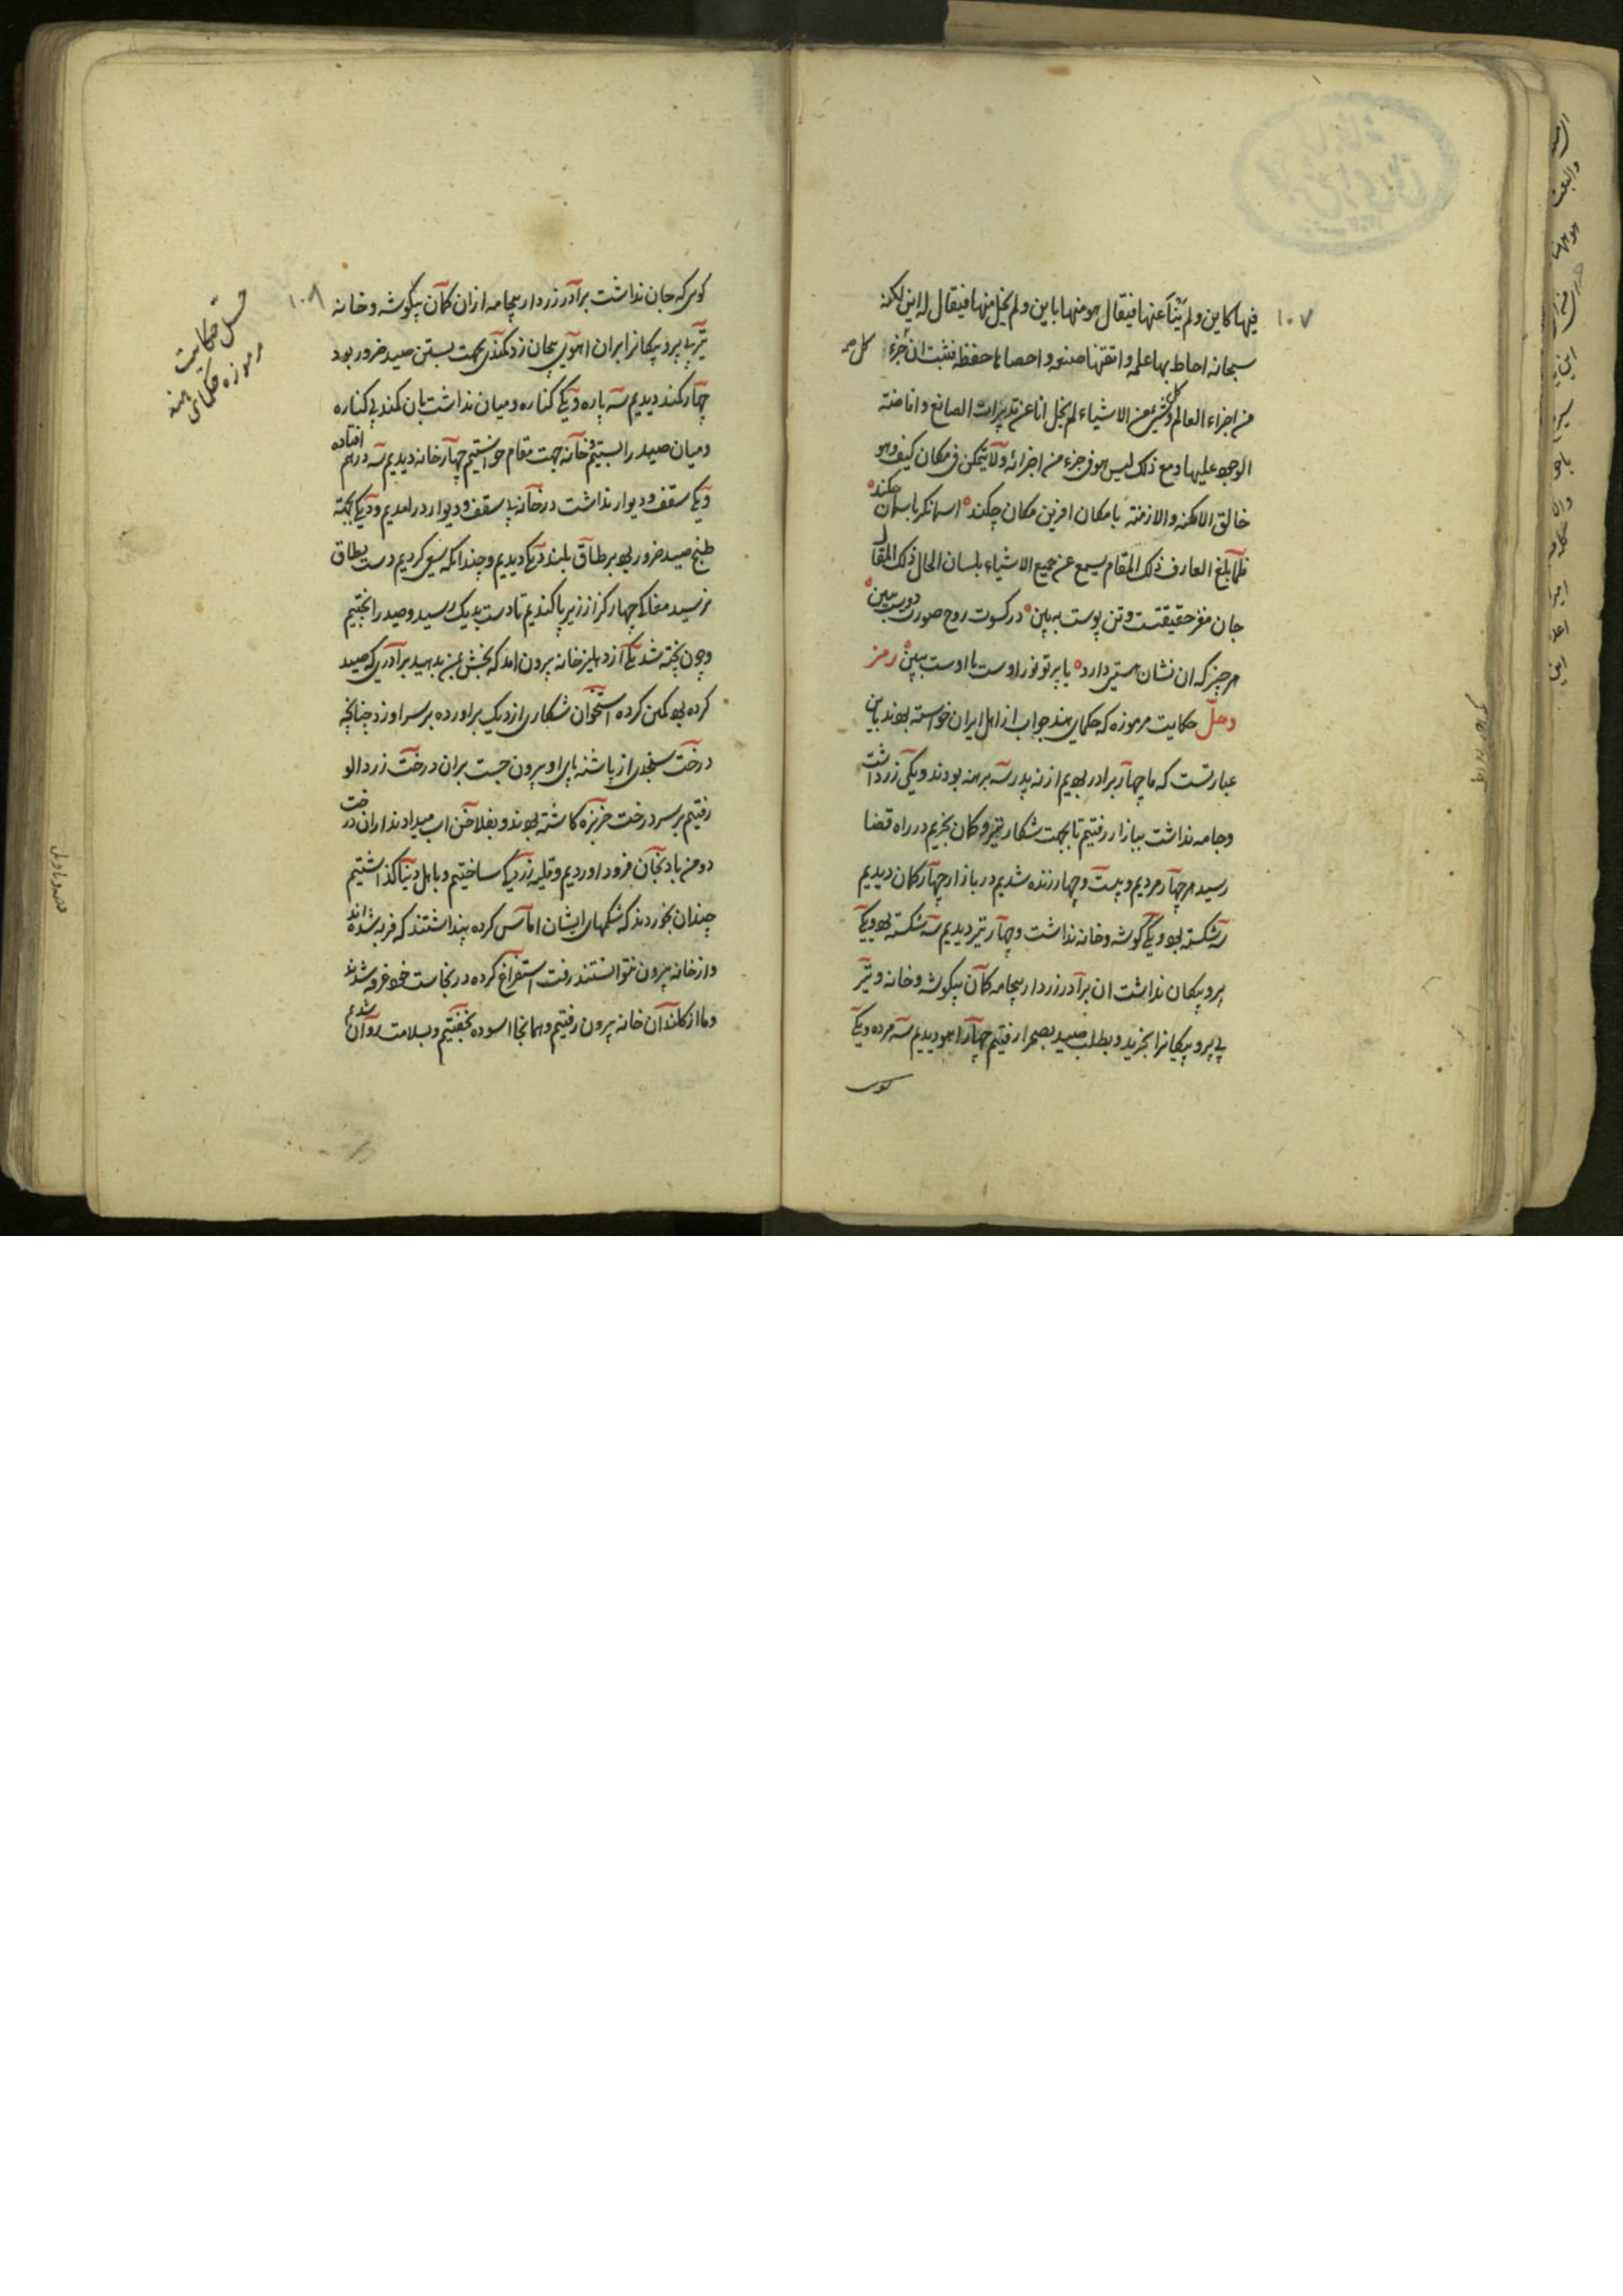 ۱۰۷
فیها کاین ولم ینأ عنها فیقال هو منها باین ولم یخل منها فیقال له این لکنه
سبحانه احاط بها علمه و اتقنها صنعه و احصاها حفظه فثبت ان جزء
کل صح
من اجزاء العالم و کل شیء من الاشیاء لم یخل انا عن تدبیرات الصانع و افاضته
الوجود علیها و مع ذلک لیس هو فی جزء من اجزائه ولا یتمکن فی مکان کیف وهو
خالق الامکنه والازمنته با مکان افرین مکان چکند اسمانگر باسمان چکند
فلما بلغ العارف ذلک المقام یسمع عن جمیع الاشیاء بلسان الحال ذلک المقال
جان مغز حقیقتست و تن پوست ببین در کسوت روح صورت دوست ببین
هر چیز که ان نشان هستی دارد یا پرتو نور اوست یا اوست ببین رمز
و حل حکایت مرموزه که حکمای هند جواب از اهل ایران خواسته بودند باین
عبارتست که ما چهار برادر بودیم از نه پدر سه برهنه بودند و یکی زر داشت
و جامه نداشت ببازار رفتیم تا بجهت شکار تیر و کمان بخریم در راه قضا
رسید هر چهار مردیم و بیست و چهار زنده شدیم در بازار چهار کمان دیدیم
سه شکسته بود و یکی گوشه و خانه نداشت و چهار تیر دیدیم سه شکسته بود و یکی
پر و پیکان نداشت ان برادر زردار بیجامه کمان بیگوشه و خانه و تیر
بی پر و پیکانرا بخرید و بطلب صید بصحرا رفتیم چهار اهو دیدیم سه مرده و یکی
کوس
۱۰۸
کوس که جان نداشت برادر زردار بیجامه ازان کمان بیگوشه و خانه
تیر بی پر و پیکانرا بران اهوی بیجان زد کمندی بجهت بستن صید ضرور بود
چهار کمند دیدیم سه پاره و یکی کناره و میان نداشت بان کمند بی کناره
و میان صید را بستیم و خانه جهت مقام خواستیم چهار خانه دیدیم سه درهم افتاده
و یکی سقف و دیوار نداشت در خانه بی سقف و دیوار درامدیم و دیکی بجهته
طبخ صید ضرور بود بر طاق بلند دیکی دیدیم و چندانکه سعی کردیم دست بطاق
نرسید مغاکی چهار گز از زیر پا کندیم تا دست بدیک رسید و صید را پختیم
و چون پخته شد یکی از دهلیز خانه بیرون امد که بخش من بدهید برادری که صید
کرده بود کمین کرده استخوان شکار را از دیک براورده بر سر او زد چنانچه
درخت سنجدی از پاشنه پای او بیرون جست بران درخت زردالو
رفتیم بر سر درخت خربزه کاشته بودند و بفلاخن اب میدادند ازان درخت
دو من بادنجان فرود اوردیم و قلیه زردک ساختیم و باهل دنیا گذاشتیم
چندان بخوردند که شکمهای ایشان اماس کرده پنداشتند که فربه شده اند
و از خانه بیرون نتوانستند رفت استفراغ کرده در نجاست خود غرق شدند
و ما از کلیدان خانه بیرون رفتیم و همانجا اسوده بخفتیم و بسلامت روان شدیم
حکایت
مرموزه حکمای هند